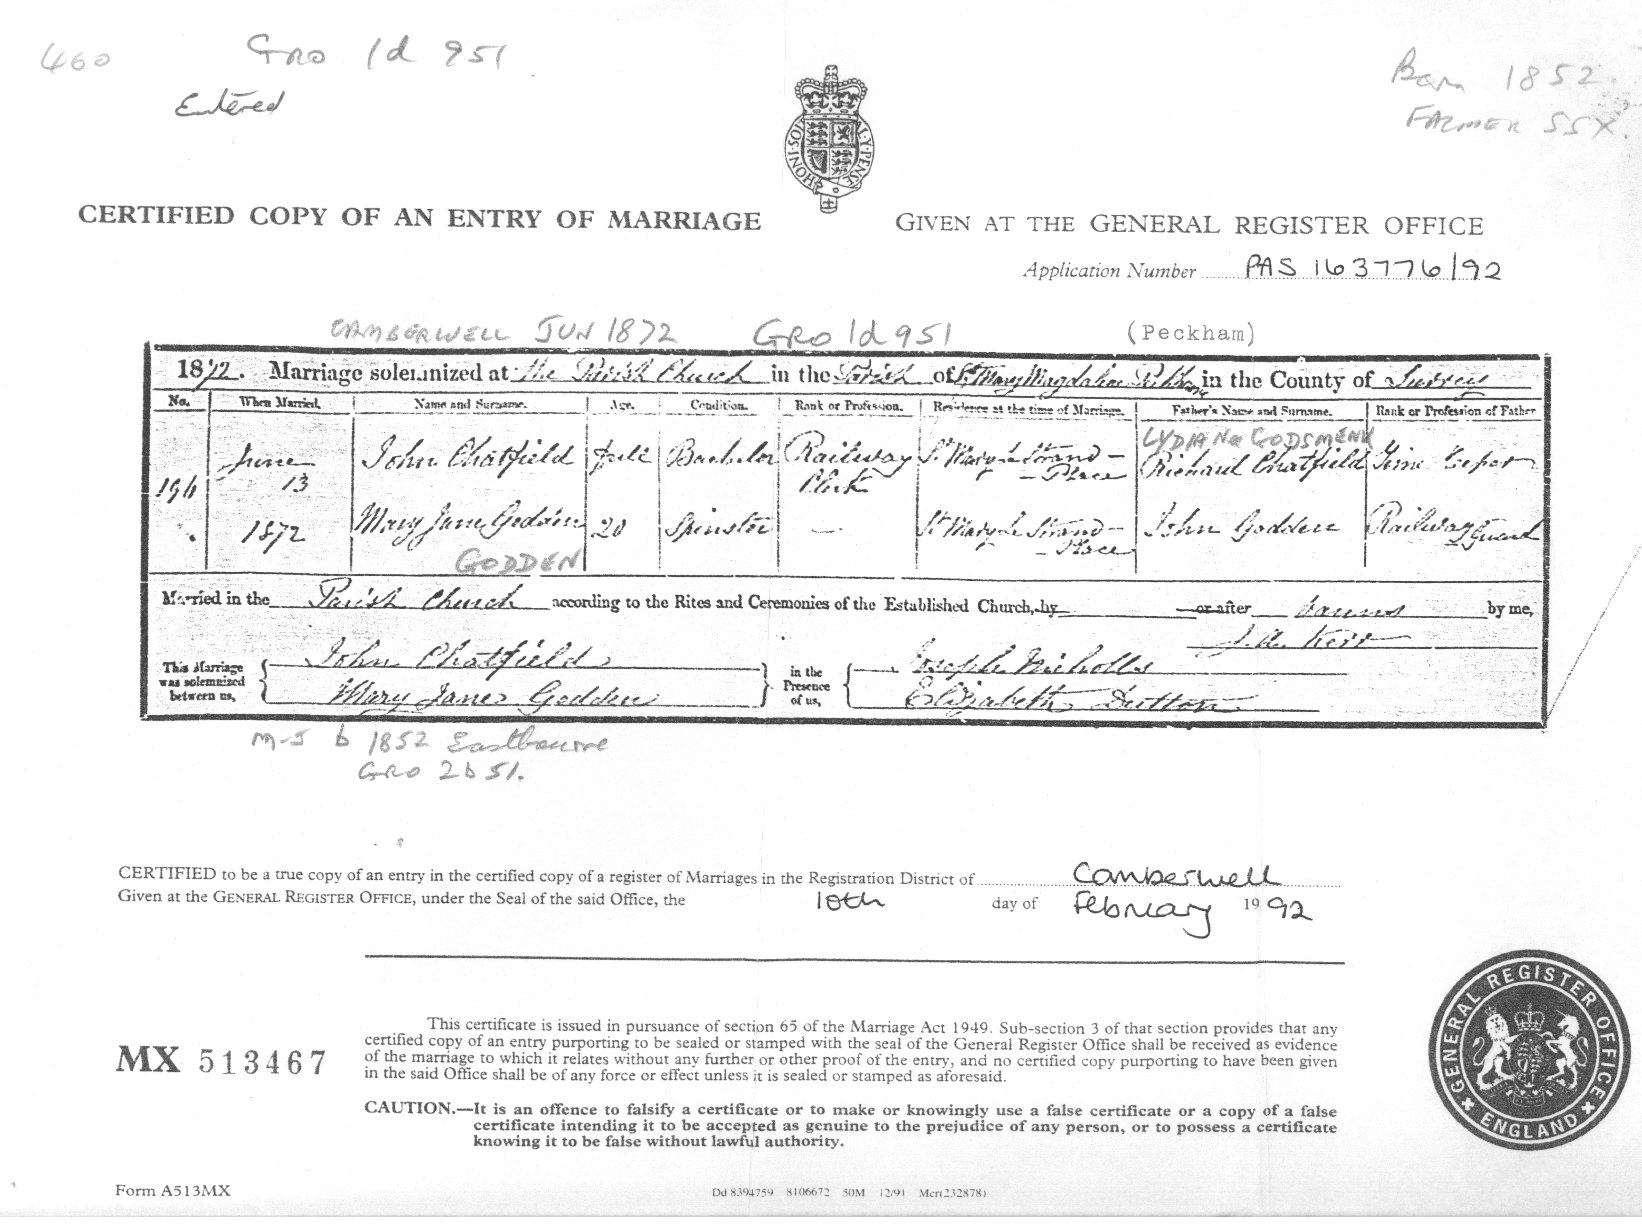 460 GRO 1d 951
Entered
Born 1852.
FARMER SSX.
HONI·SOIT Y·PENSE
CERTIFIED COPY OF AN ENTRY OF MARRIAGE
GIVEN AT THE GENERAL REGISTER OFFICE
Application Number PAS 163776/92
CAMBERWELL JUN 1872 GRO 1d 951 (Peckham)
1872. Marriage solemnized at the Parish Church in the Parish of St Mary Magdalene in the County of Surrey
No. When Married. Name and Surname. Age. Condition. Rank or Profession. Residence at the time of Marriage. Father's Name and Surname. Rank or Profession of Father
LYDIA Nee GODSMENK
196 June 13 John Chatfield full Bachelor Railway Clerk St Mary Le Strand Place Richard Chatfield Time Keeper
1872 Mary Jane Godden 20 Spinster — St Mary Le Strand Place John Godden Railway Guard
GODDEN
Married in the Parish Church according to the Rites and Ceremonies of the Established Church, by or after banns by me,
J. A. Kerr
This Marriage was solemnized between us, John Chatfield in the Presence of us, Joseph Nicholls
Mary Jane Godden Elizabeth Dutton
M-J b 1852 Eastbourne
GRO 2b 51.
CERTIFIED to be a true copy of an entry in the certified copy of a register of Marriages in the Registration District of Camberwell
Given at the GENERAL REGISTER OFFICE, under the Seal of the said Office, the 10th day of February 1992
MX 513467
This certificate is issued in pursuance of section 65 of the Marriage Act 1949. Sub-section 3 of that section provides that any
certified copy of an entry purporting to be sealed or stamped with the seal of the General Register Office shall be received as evidence
of the marriage to which it relates without any further or other proof of the entry, and no certified copy purporting to have been given
in the said Office shall be of any force or effect unless it is sealed or stamped as aforesaid.
CAUTION.—It is an offence to falsify a certificate or to make or knowingly use a false certificate or a copy of a false
certificate intending it to be accepted as genuine to the prejudice of any person, or to possess a certificate
knowing it to be false without lawful authority.
GENERAL REGISTER OFFICE
ENGLAND
Form A513MX
Dd 8394759 8106672 50M 12/91 Mcr(232878)